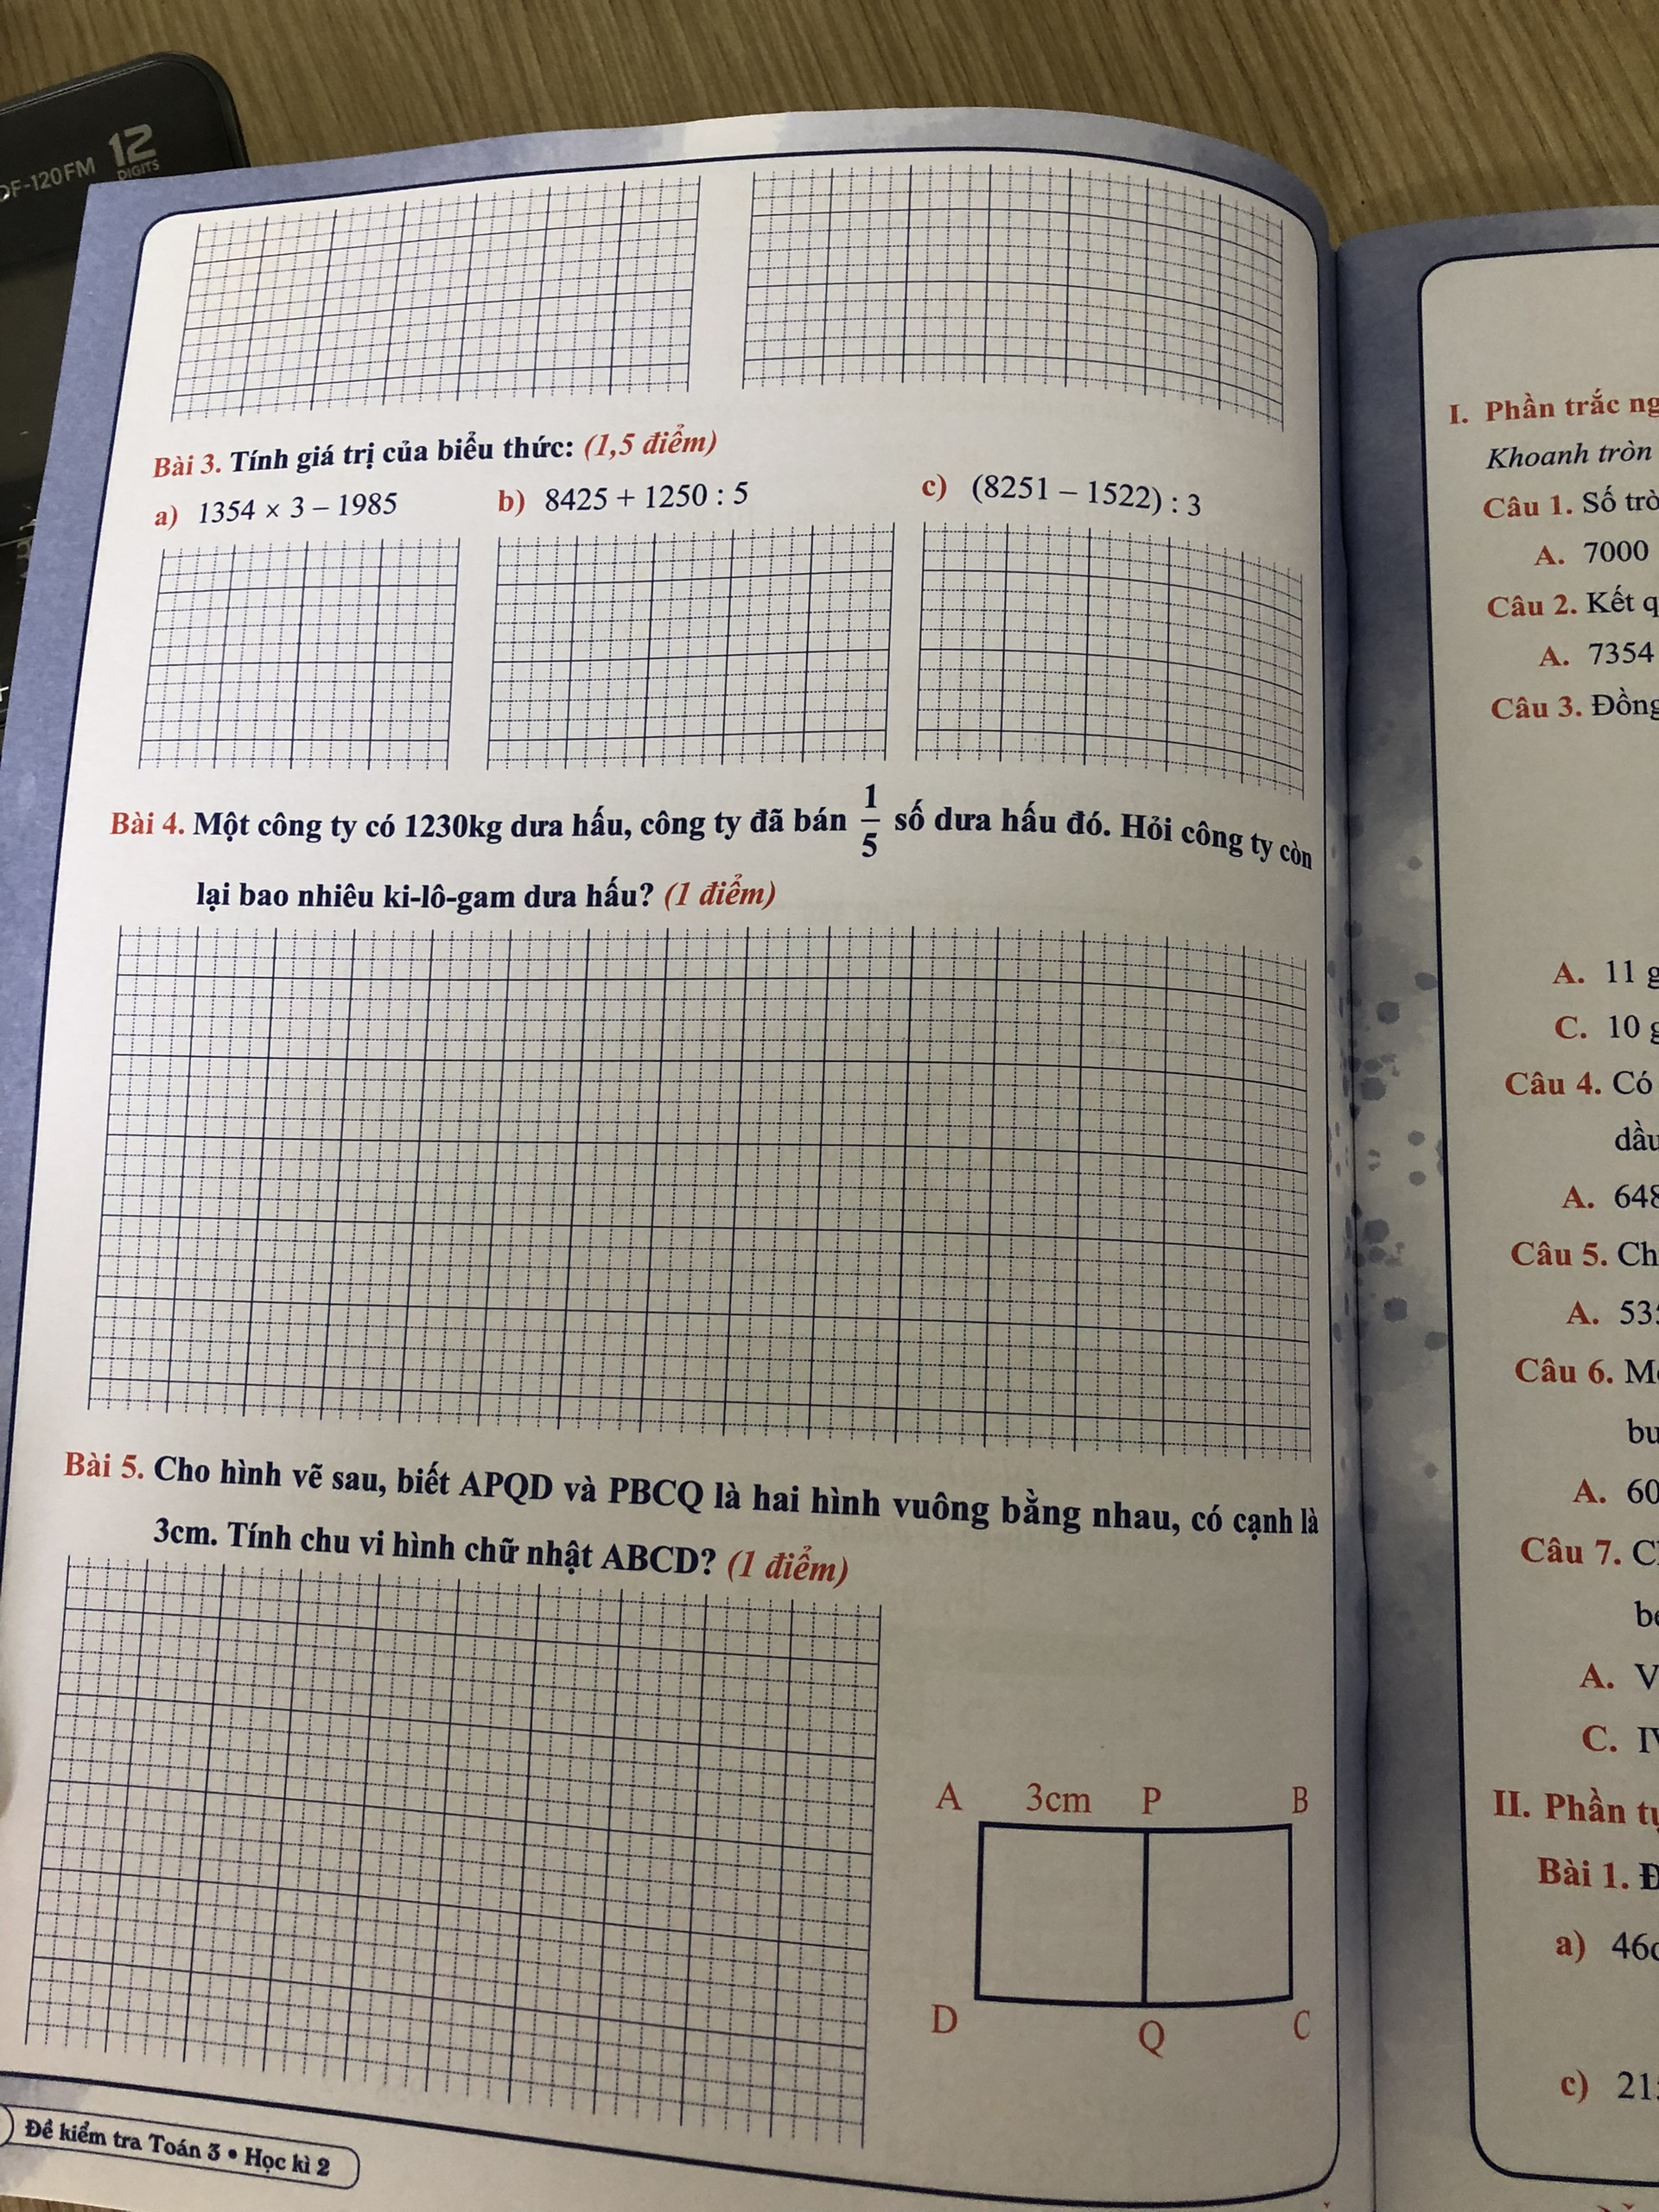 DF-120FM 12
DIGITS
Bài 3. Tính giá trị của biểu thức: (1,5 điểm)
a) 1354 × 3 – 1985 b) 8425 + 1250 : 5 c) (8251 – 1522) : 3
Bài 4. Một công ty có 1230kg dưa hấu, công ty đã bán 1/5 số dưa hấu đó. Hỏi công ty còn
lại bao nhiêu ki-lô-gam dưa hấu? (1 điểm)
Bài 5. Cho hình vẽ sau, biết APQD và PBCQ là hai hình vuông bằng nhau, có cạnh là
3cm. Tính chu vi hình chữ nhật ABCD? (1 điểm)
A 3cm P B
D Q C
Đề kiểm tra Toán 3 • Học kì 2
I. Phần trắc
Khoanh tròn
Câu 1. Số
A. 7000
Câu 2. Kết
A. 7354
Câu 3.
A. 11
C. 10
Câu 4. Có
A.
Câu 5.
A.
Câu 6.
A. 60
Câu 7.
A.
C.
II. Phần
Bài 1.
a)
c)